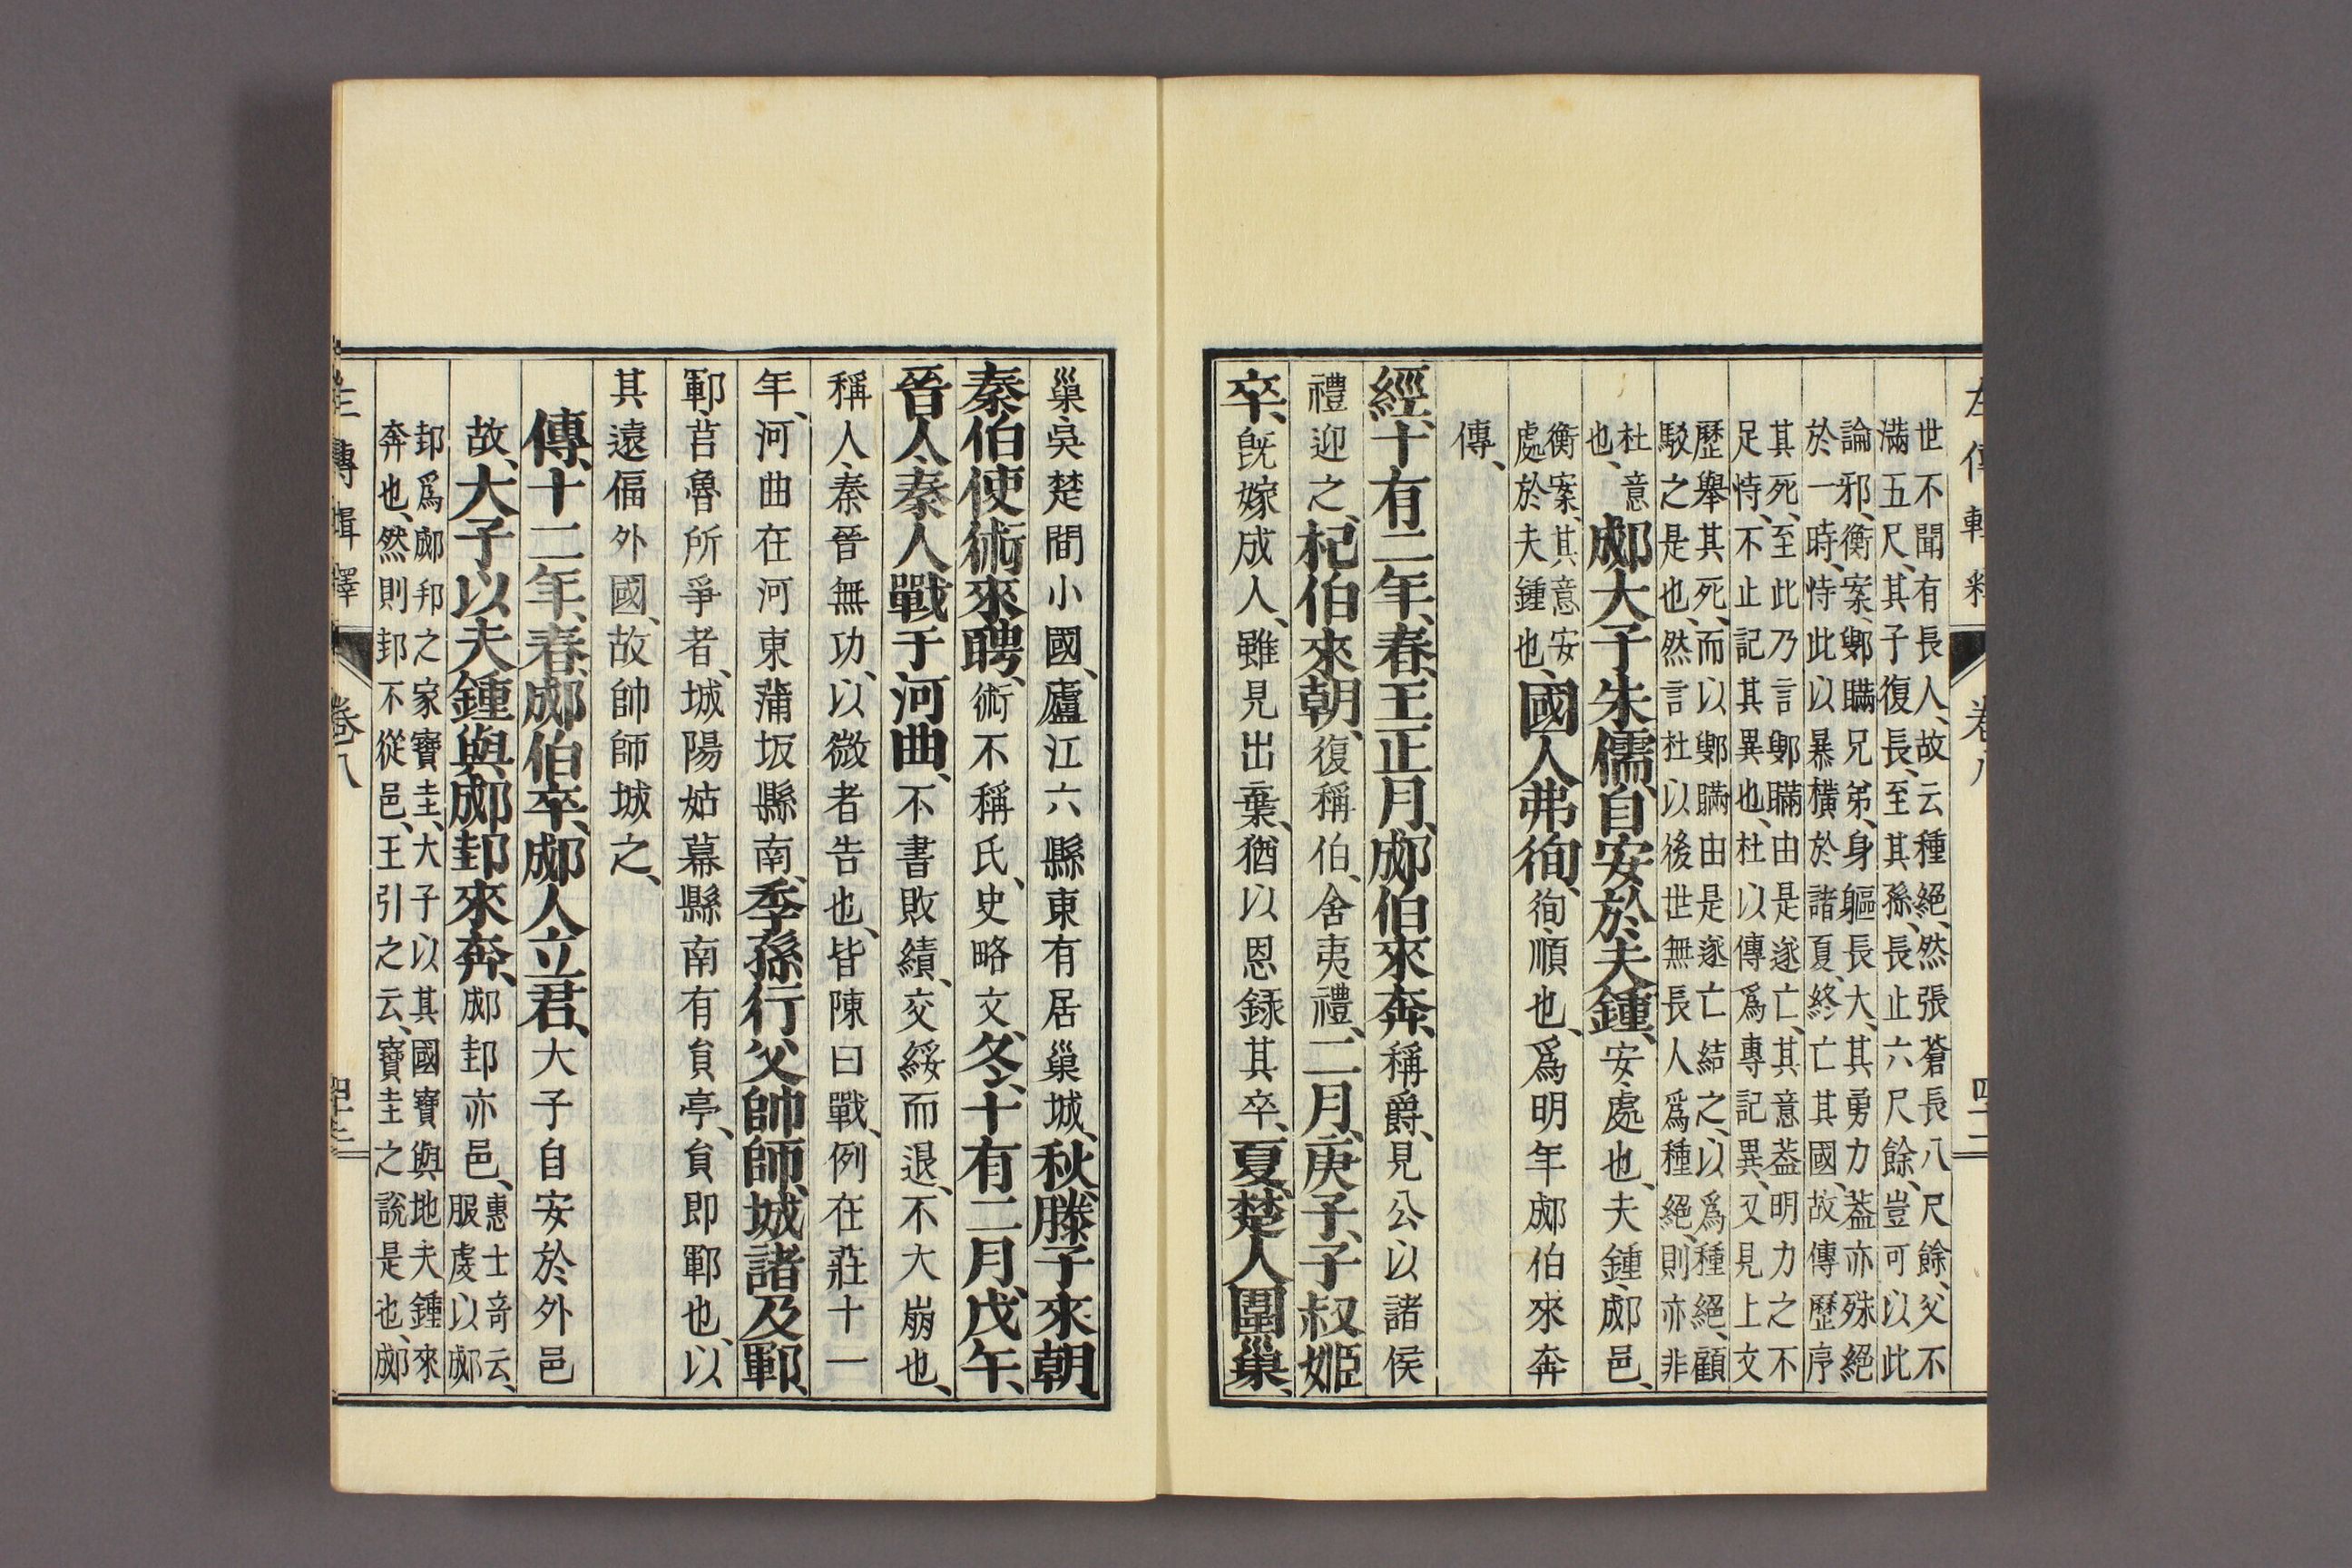 左傳輯釋 卷八 四十二
世不聞有長人、故云種絕、然張蒼長八尺餘、父不
滿五尺、其子復長、至其孫、長止六尺餘、豈可以此
論邪、衡案、鄋瞞兄弟、身軀長大、其勇力葢亦殊絕
於一時、恃此以暴橫於諸夏、終亡其國、故傳歷序
其死、至此乃言鄋瞞由是遂亡、其意葢明力之不
足恃、不止記其異也、杜以傳爲專記異、又見上文
歷舉其死、而以鄋瞞由是遂亡結之、以爲種絕、顧
駁之是也、然言杜以後世無長人爲種絕、則亦非
杜意也、郕大子朱儒、自安於夫鍾、安、處也、夫鍾、郕邑、
衡案、其意安處於夫鍾也、國人弗徇、徇、順也、爲明年郕伯來奔
傳、
經、十有二年、春、王正月、郕伯來奔、稱爵、見公以諸侯
禮迎之、杞伯來朝、復稱伯、舍夷禮、二月、庚子、子叔姬
卒、旣嫁成人、雖見出棄、猶以恩錄其卒、夏、楚人圍巢、
巢吳楚間小國、廬江六縣東有居巢城、秋、滕子來朝
秦伯使術來聘、術不稱氏、史略文、冬、十有二月、戊午、
晉人、秦人戰于河曲、不書敗績、交綏而退、不大崩也、
稱人、秦晉無功、以微者告也、皆陳曰戰、例在莊十一
年、河曲在河東蒲坂縣南、季孫行父帥師、城諸及鄆、
鄆、莒魯所爭者、城陽姑幕縣南有員亭、員即鄆也、以
其遠偪外國、故帥師城之、
傳、十二年、春、郕伯卒、郕人立君、大子自安於外邑
故、大子以夫鍾與郕邽來奔、郕邽亦邑、惠士奇云、服虔以郕
邽爲郕邦之家寶圭、大子以其國寶與地夫鍾來
奔也、然則邽不從邑、王引之云、寶圭之說是也、郕
左傳輯釋 卷八